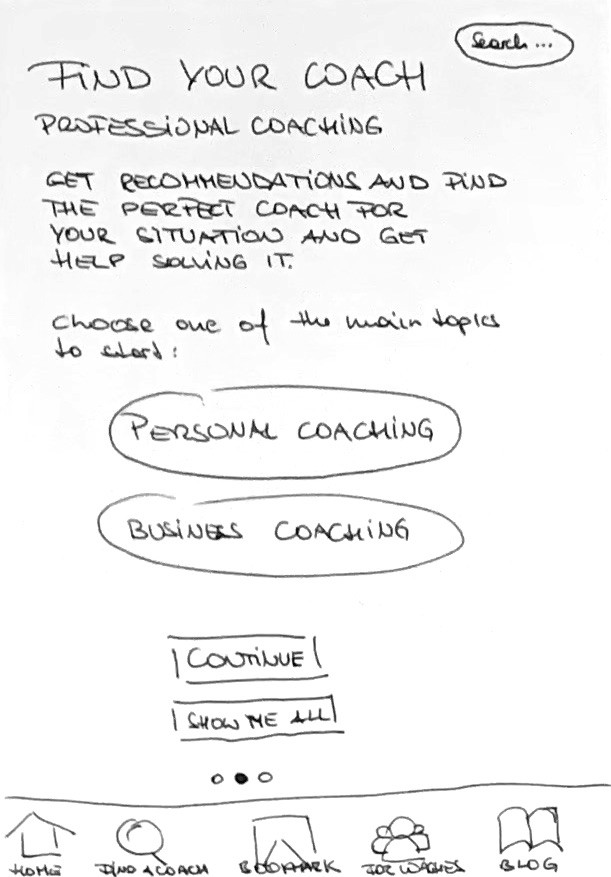 Search...
FIND YOUR COACH
PROFESSIONAL COACHING
GET RECOMMENDATIONS AND FIND
THE PERFECT COACH FOR
YOUR SITUATION AND GET
HELP SOLVING IT.
Choose one of the main topics
to start:
PERSONAL COACHING
BUSINESS COACHING
CONTINUE
SHOW ME ALL
HOME FIND A COACH BOOKMARK FOR COACHES BLOG